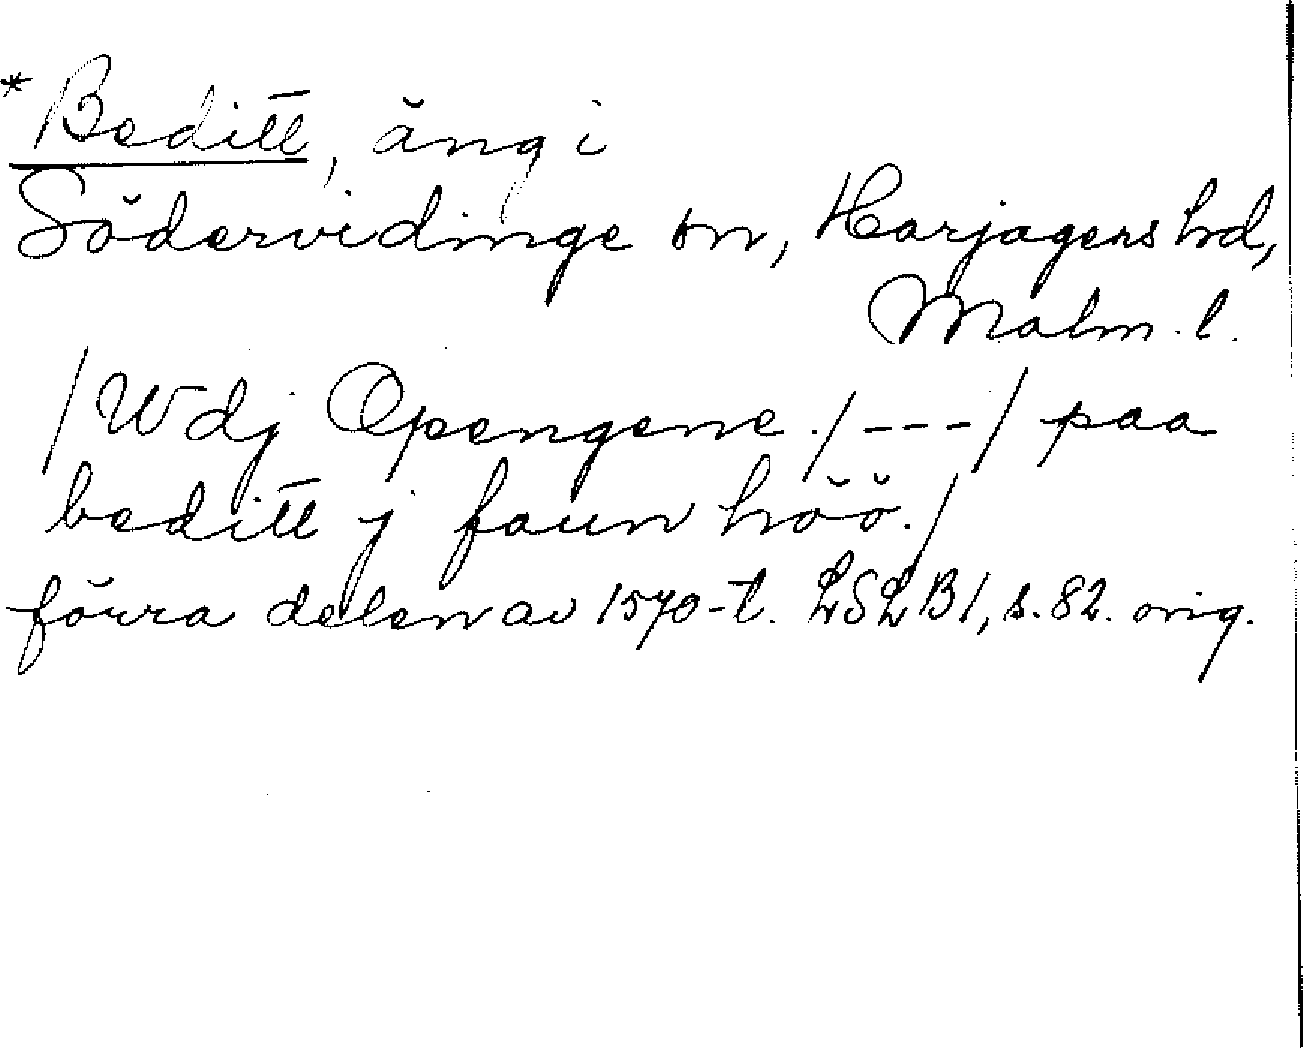 *Beditt, äng i
Södervidinge sn, Harjagers hd,
Malm. l.
/Wdj Opengene./---/ paa
beditt j faun höö./
förra delen av 1570-t. LSLB1, s.82. orig.